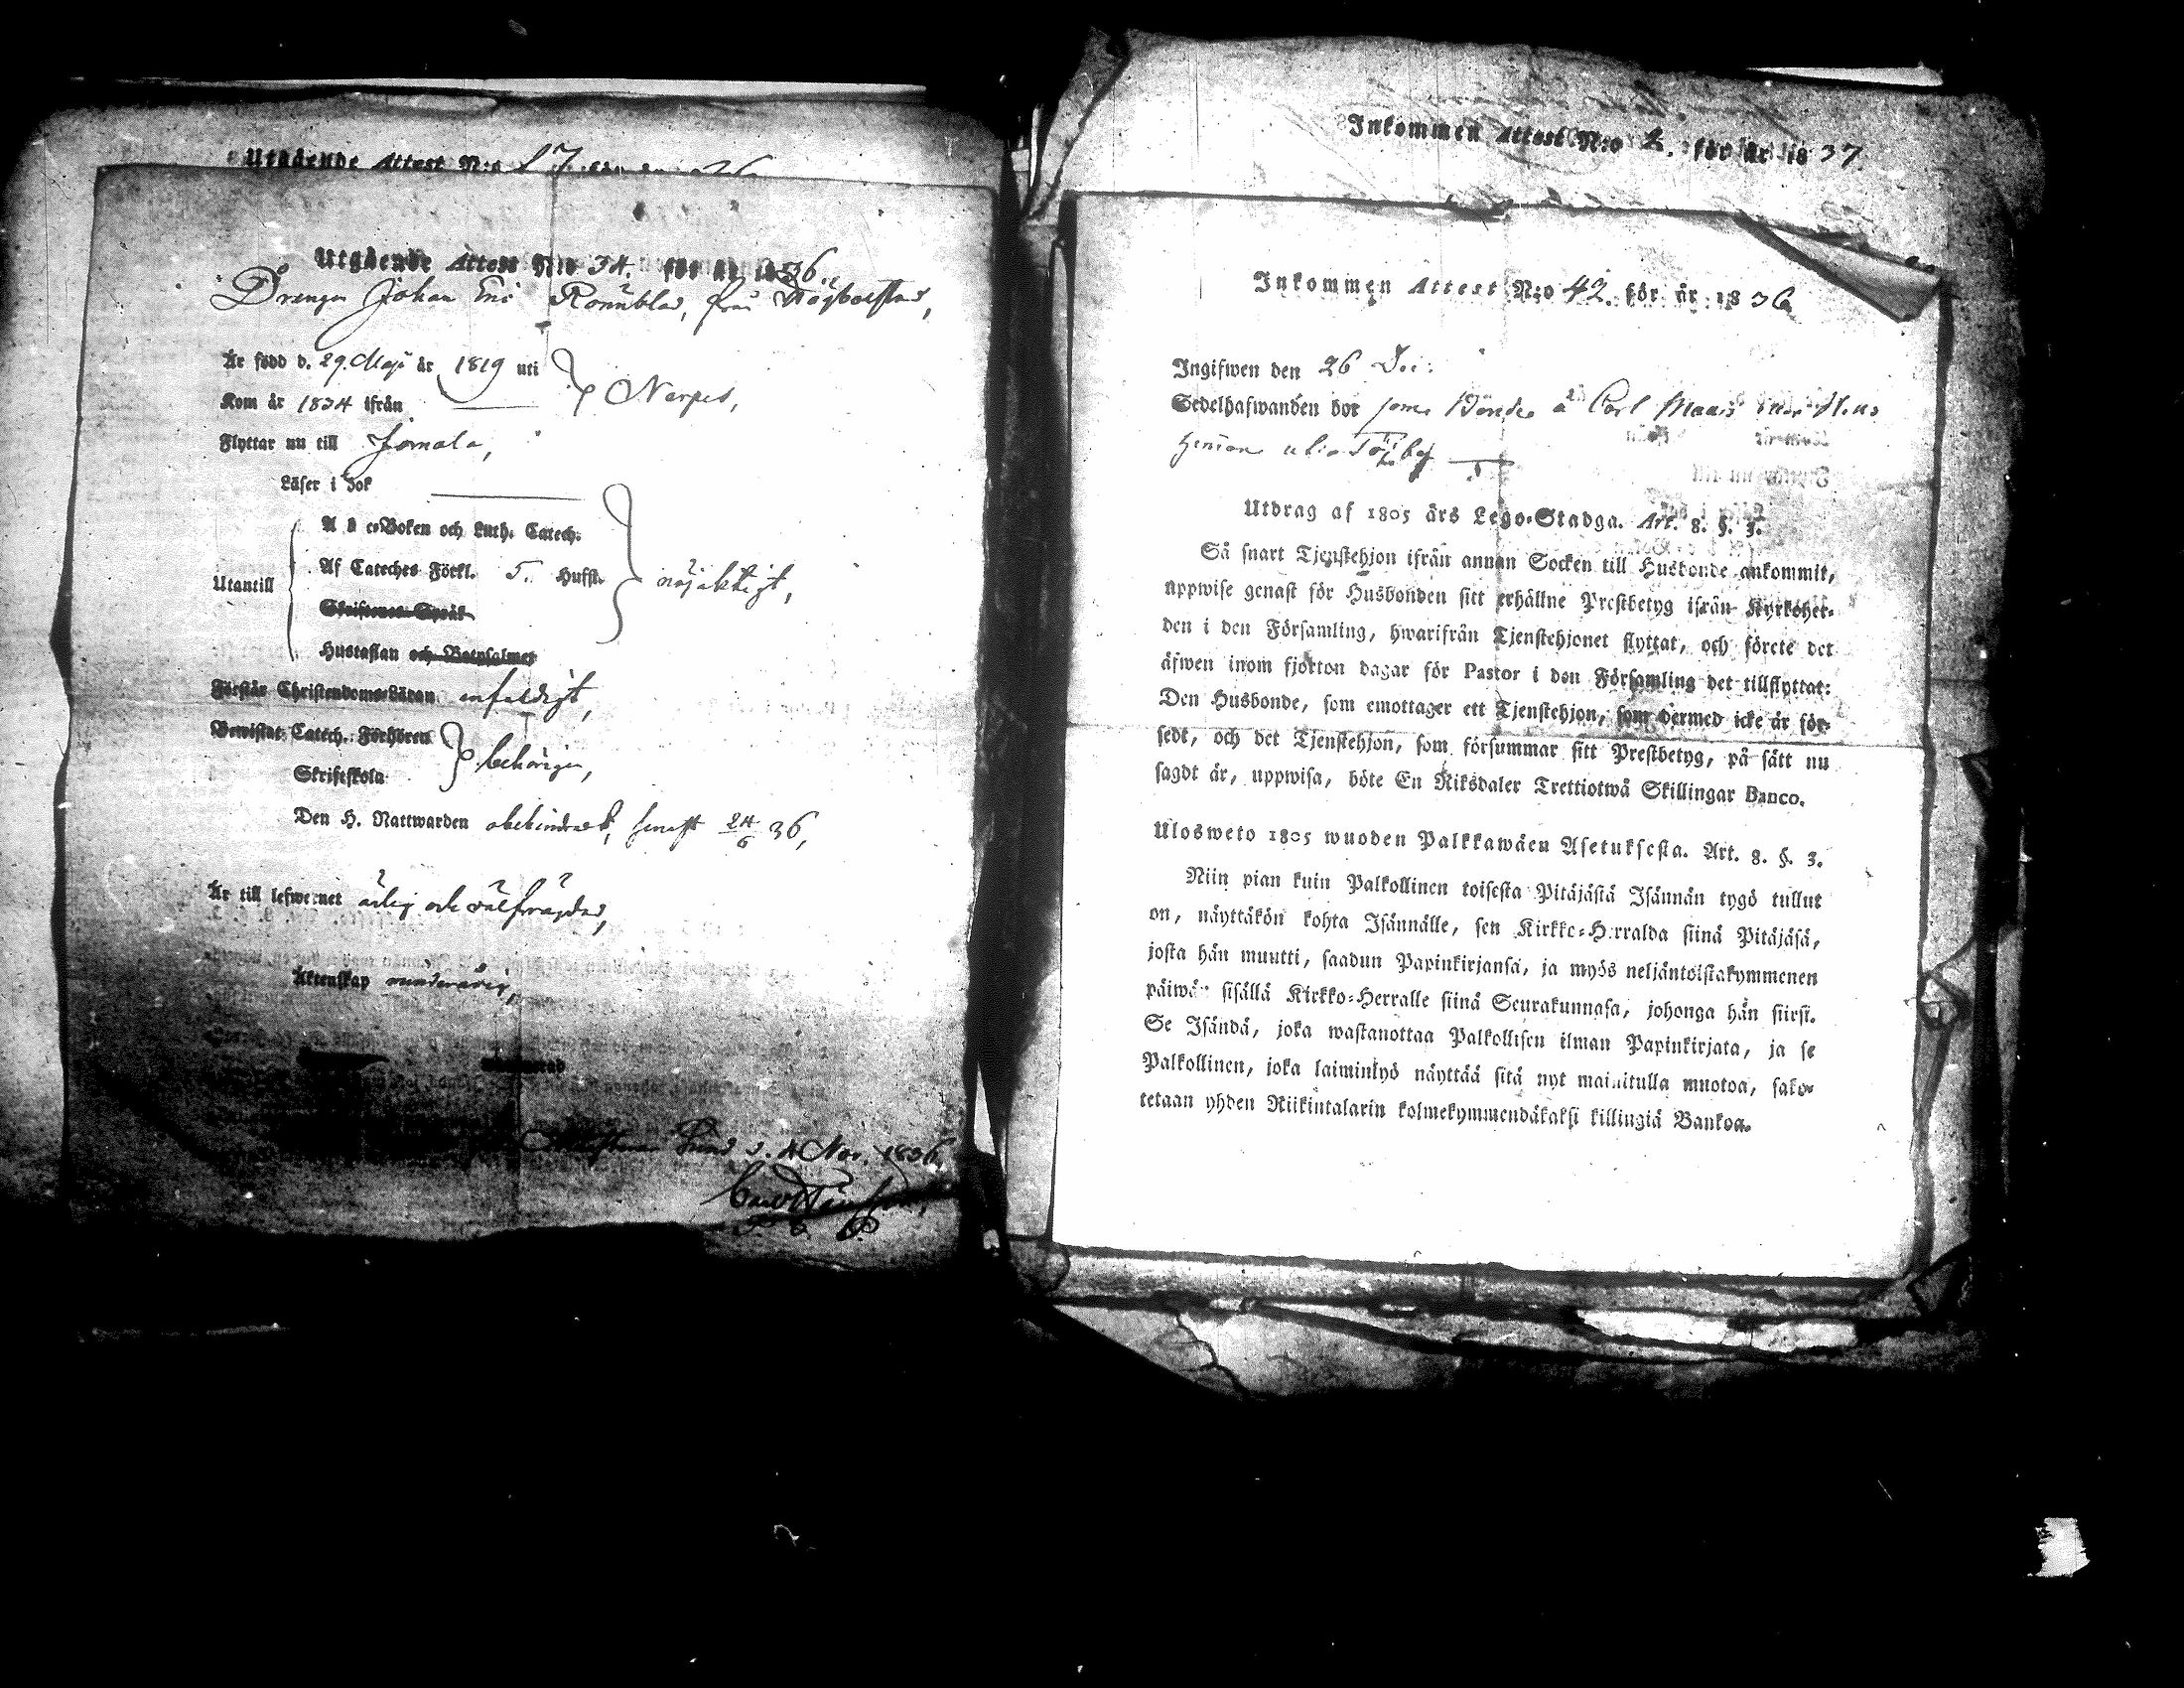 Utgående Attest N:o 17 för år 36
Utgående Attest N:o 34. för år 1836
Drengen Johan Eric Rönnblad, från
Är född d. 29. Maji år 1819 uti
Kom år 1834 ifrån Nerpes,
Flyttar nu till Jomala,
Läser i bok
A b c-Boken och Luth. Catech.
Utantill Af Cateches Förkl. 5. Hufst. nöjaktigt,
Skriftenes Språk
Hustaflan och Botpsalmer
Förstår Christendoms-Läran enfaldigt,
Bewistat Catech. Förhören
Skriftskola behörigen,
Den H. Nattwarden obehindrad, senast 24/6 36,
Är till lefwernet ärlig och välfrägdad,
Äktenskap minderårig,
d. 4 Nov. 1836.
Inkommen Attest N:o 2. för år 1837
Inkommen Attest N:o 42. för år 1836
Ingifwen den 26 Dec.
Sedelhafwanden bor som à Carl
Utdrag af 1805 års Lego-Stadga. Art. 8. §. 3.
Så snart Tjenstehjon ifrån annan Socken till Husbonde ankommit,
uppwise genast för Husbonden sitt erhållne Prestbetyg ifrån Kyrkoher-
den i den Församling, hwarifrån Tjenstehjonet flyttat, och förete det
äfwen inom fjorton dagar för Pastor i den Församling det tillflyttat:
Den Husbonde, som emottager ett Tjenstehjon, som dermed icke är för-
sedt, och det Tjenstehjon, som försummar sitt Prestbetyg, på sätt nu
sagdt är, uppwisa, böte En Riksdaler Trettiotwå Skillingar Banco.
Ulosweto 1805 wuoden Palkkawäen Asetuksesta. Art. 8. §. 3.
Niin pian kuin Palkollinen toisesta Pitäjästä Isännän tygö tullut
on, näyttäkön kohta Isännälle, sen Kirkko-Herralda siinä Pitäjäsä,
josta hän muutti, saadun Papinkirjansa, ja myös neljäntoistakymmenen
päiwän sisällä Kirkko-Herralle siinä Seurakunnasa, johonga hän siirsi.
Se Isändä, joka wastanottaa Palkollisen ilman Papinkirjata, ja se
Palkollinen, joka laiminlyö näyttää sitä nyt mainitulla muotoa, sako-
tetaan yhden Riikintalarin kolmekymmendäkaksi killingiä Bankoa.